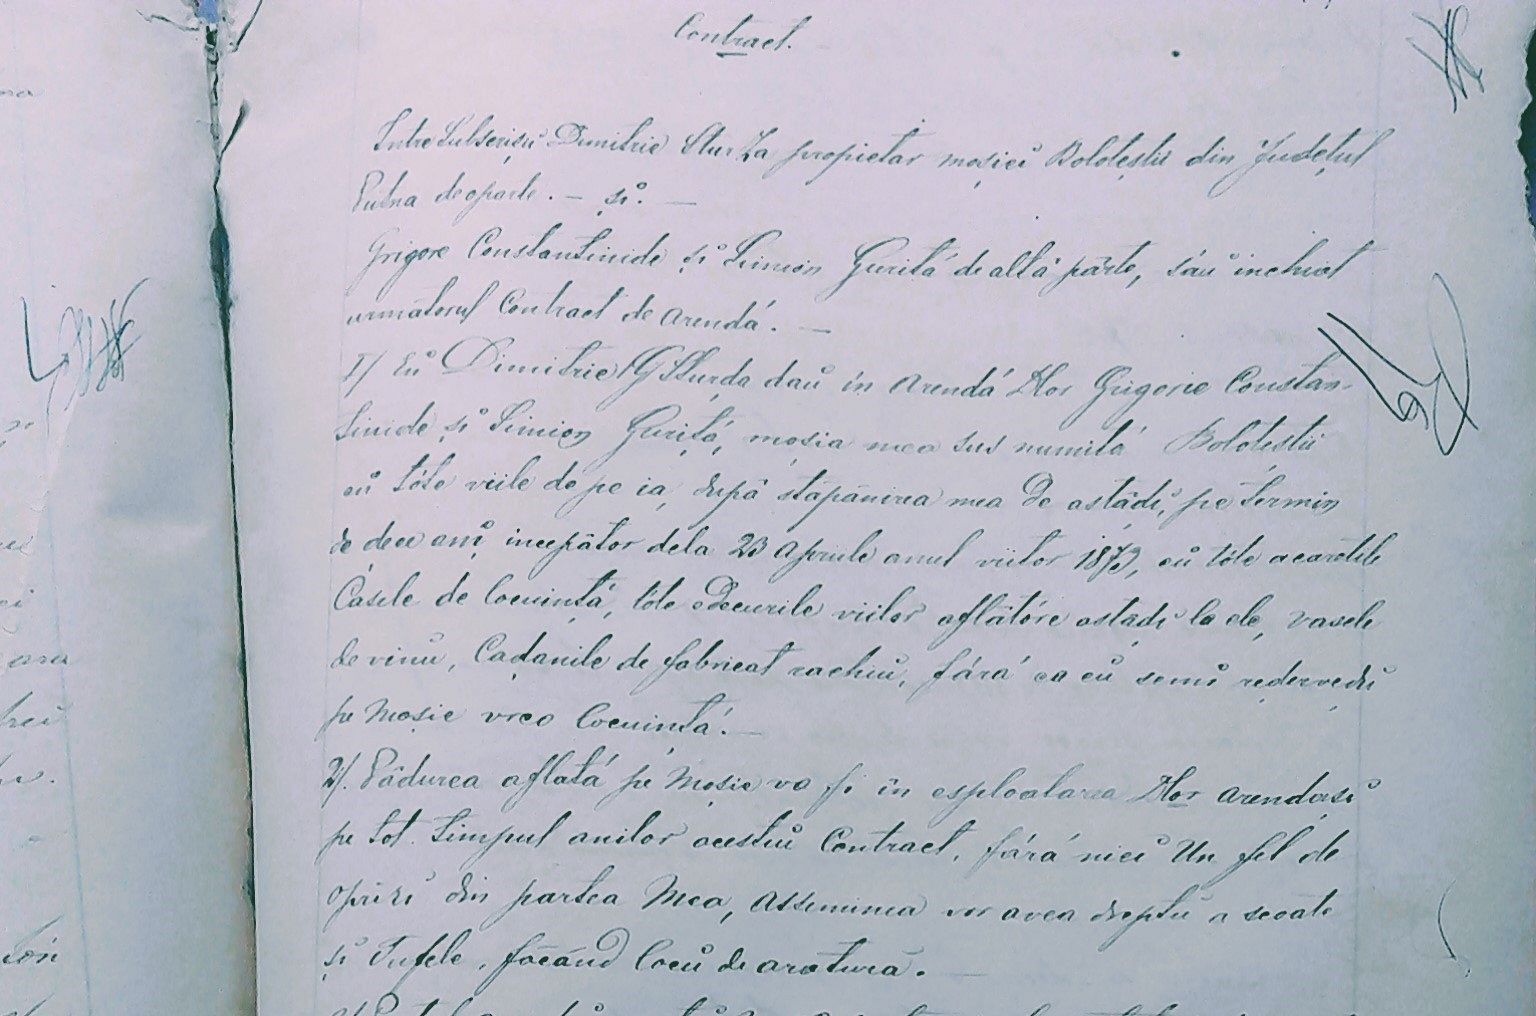 Contract.
Intre Subscrișu Dimitrie Sturza propietar moșiei Boloteștii din Județul
Putna deoparte. — și. —
Grigore Constantinide și Simion Guriță de altă parte, s'au inchiat
următorul Contract de Arendă. —
1/ Eŭ Dimitrie G Sturḑa daŭ in arendă Dlor Grigorie Constan-
tinide și Simion Guriță, moșia mea sus numită Boloteștii
cŭ tóte viile de pe ia, după stăpănirea mea de astăḑi, pe termin
de ḑece anĭ, incepător dela 23 Aprile anul viitor 1873, cŭ tóte acaretele
Casele de locuință, tóte edecurile viilor aflătóre astaḑĭ la ele, vasele
de vinu, Caḑanile de fabricat rachiŭ, fără ca eŭ semĭ reḑerveḑĭ
pe Moșie vreo locuință. —
2/. Pădurea aflată pe Moșie va fi în esploatarea Dlor arendașĭ
pe tot timpul anilor acestuĭ Contract, fără nicĭ Un fel de
opriri din partea Mea, Asseminea vor avea dreptŭ a scoate
și Tufele, făcănd locŭ de arătură. —